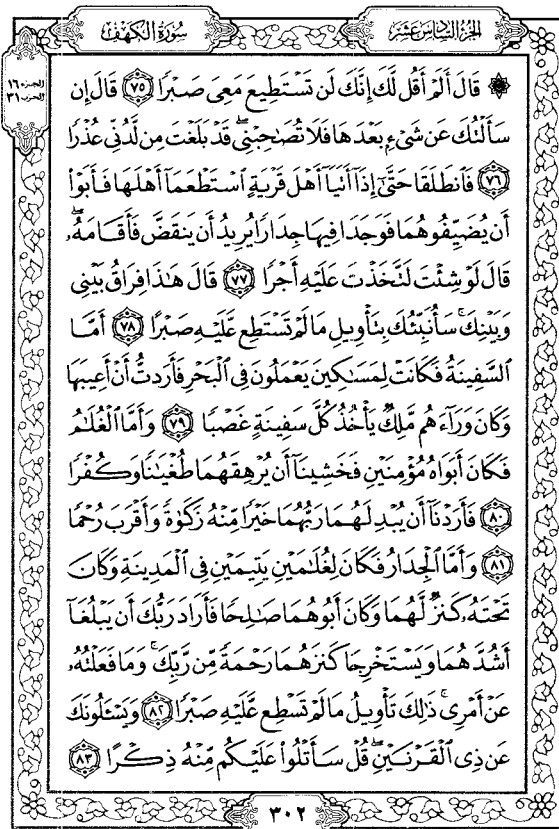 الجزء السادس عشر
سورة الكهف
الجزء ١٦
الحزب ٣١
۞ قَالَ أَلَمْ أَقُل لَّكَ إِنَّكَ لَن تَسْتَطِيعَ مَعِيَ صَبْرًا ٧٥ قَالَ إِن
سَأَلْتُكَ عَن شَيْءٍ بَعْدَهَا فَلَا تُصَٰحِبْنِي ۖ قَدْ بَلَغْتَ مِن لَّدُنِّي عُذْرًا
٧٦ فَٱنطَلَقَا حَتَّىٰٓ إِذَآ أَتَيَآ أَهْلَ قَرْيَةٍ ٱسْتَطْعَمَآ أَهْلَهَا فَأَبَوْا۟
أَن يُضَيِّفُوهُمَا فَوَجَدَا فِيهَا جِدَارًا يُرِيدُ أَن يَنقَضَّ فَأَقَامَهُۥ ۖ
قَالَ لَوْ شِئْتَ لَتَّخَذْتَ عَلَيْهِ أَجْرًا ٧٧ قَالَ هَٰذَا فِرَاقُ بَيْنِي
وَبَيْنِكَ ۚ سَأُنَبِّئُكَ بِتَأْوِيلِ مَا لَمْ تَسْتَطِع عَّلَيْهِ صَبْرًا ٧٨ أَمَّا
ٱلسَّفِينَةُ فَكَانَتْ لِمَسَٰكِينَ يَعْمَلُونَ فِي ٱلْبَحْرِ فَأَرَدتُّ أَنْ أَعِيبَهَا
وَكَانَ وَرَآءَهُم مَّلِكٌ يَأْخُذُ كُلَّ سَفِينَةٍ غَصْبًا ٧٩ وَأَمَّا ٱلْغُلَٰمُ
فَكَانَ أَبَوَاهُ مُؤْمِنَيْنِ فَخَشِينَآ أَن يُرْهِقَهُمَا طُغْيَٰنًا وَكُفْرًا
٨٠ فَأَرَدْنَآ أَن يُبْدِلَهُمَا رَبُّهُمَا خَيْرًا مِّنْهُ زَكَوٰةً وَأَقْرَبَ رُحْمًا
٨١ وَأَمَّا ٱلْجِدَارُ فَكَانَ لِغُلَٰمَيْنِ يَتِيمَيْنِ فِي ٱلْمَدِينَةِ وَكَانَ
تَحْتَهُۥ كَنزٌ لَّهُمَا وَكَانَ أَبُوهُمَا صَٰلِحًا فَأَرَادَ رَبُّكَ أَن يَبْلُغَآ
أَشُدَّهُمَا وَيَسْتَخْرِجَا كَنزَهُمَا رَحْمَةً مِّن رَّبِّكَ ۚ وَمَا فَعَلْتُهُۥ
عَنْ أَمْرِي ۚ ذَٰلِكَ تَأْوِيلُ مَا لَمْ تَسْطِع عَّلَيْهِ صَبْرًا ٨٢ وَيَسْـَٔلُونَكَ
عَن ذِي ٱلْقَرْنَيْنِ ۖ قُلْ سَأَتْلُوا۟ عَلَيْكُم مِّنْهُ ذِكْرًا ٨٣
٣٠٢